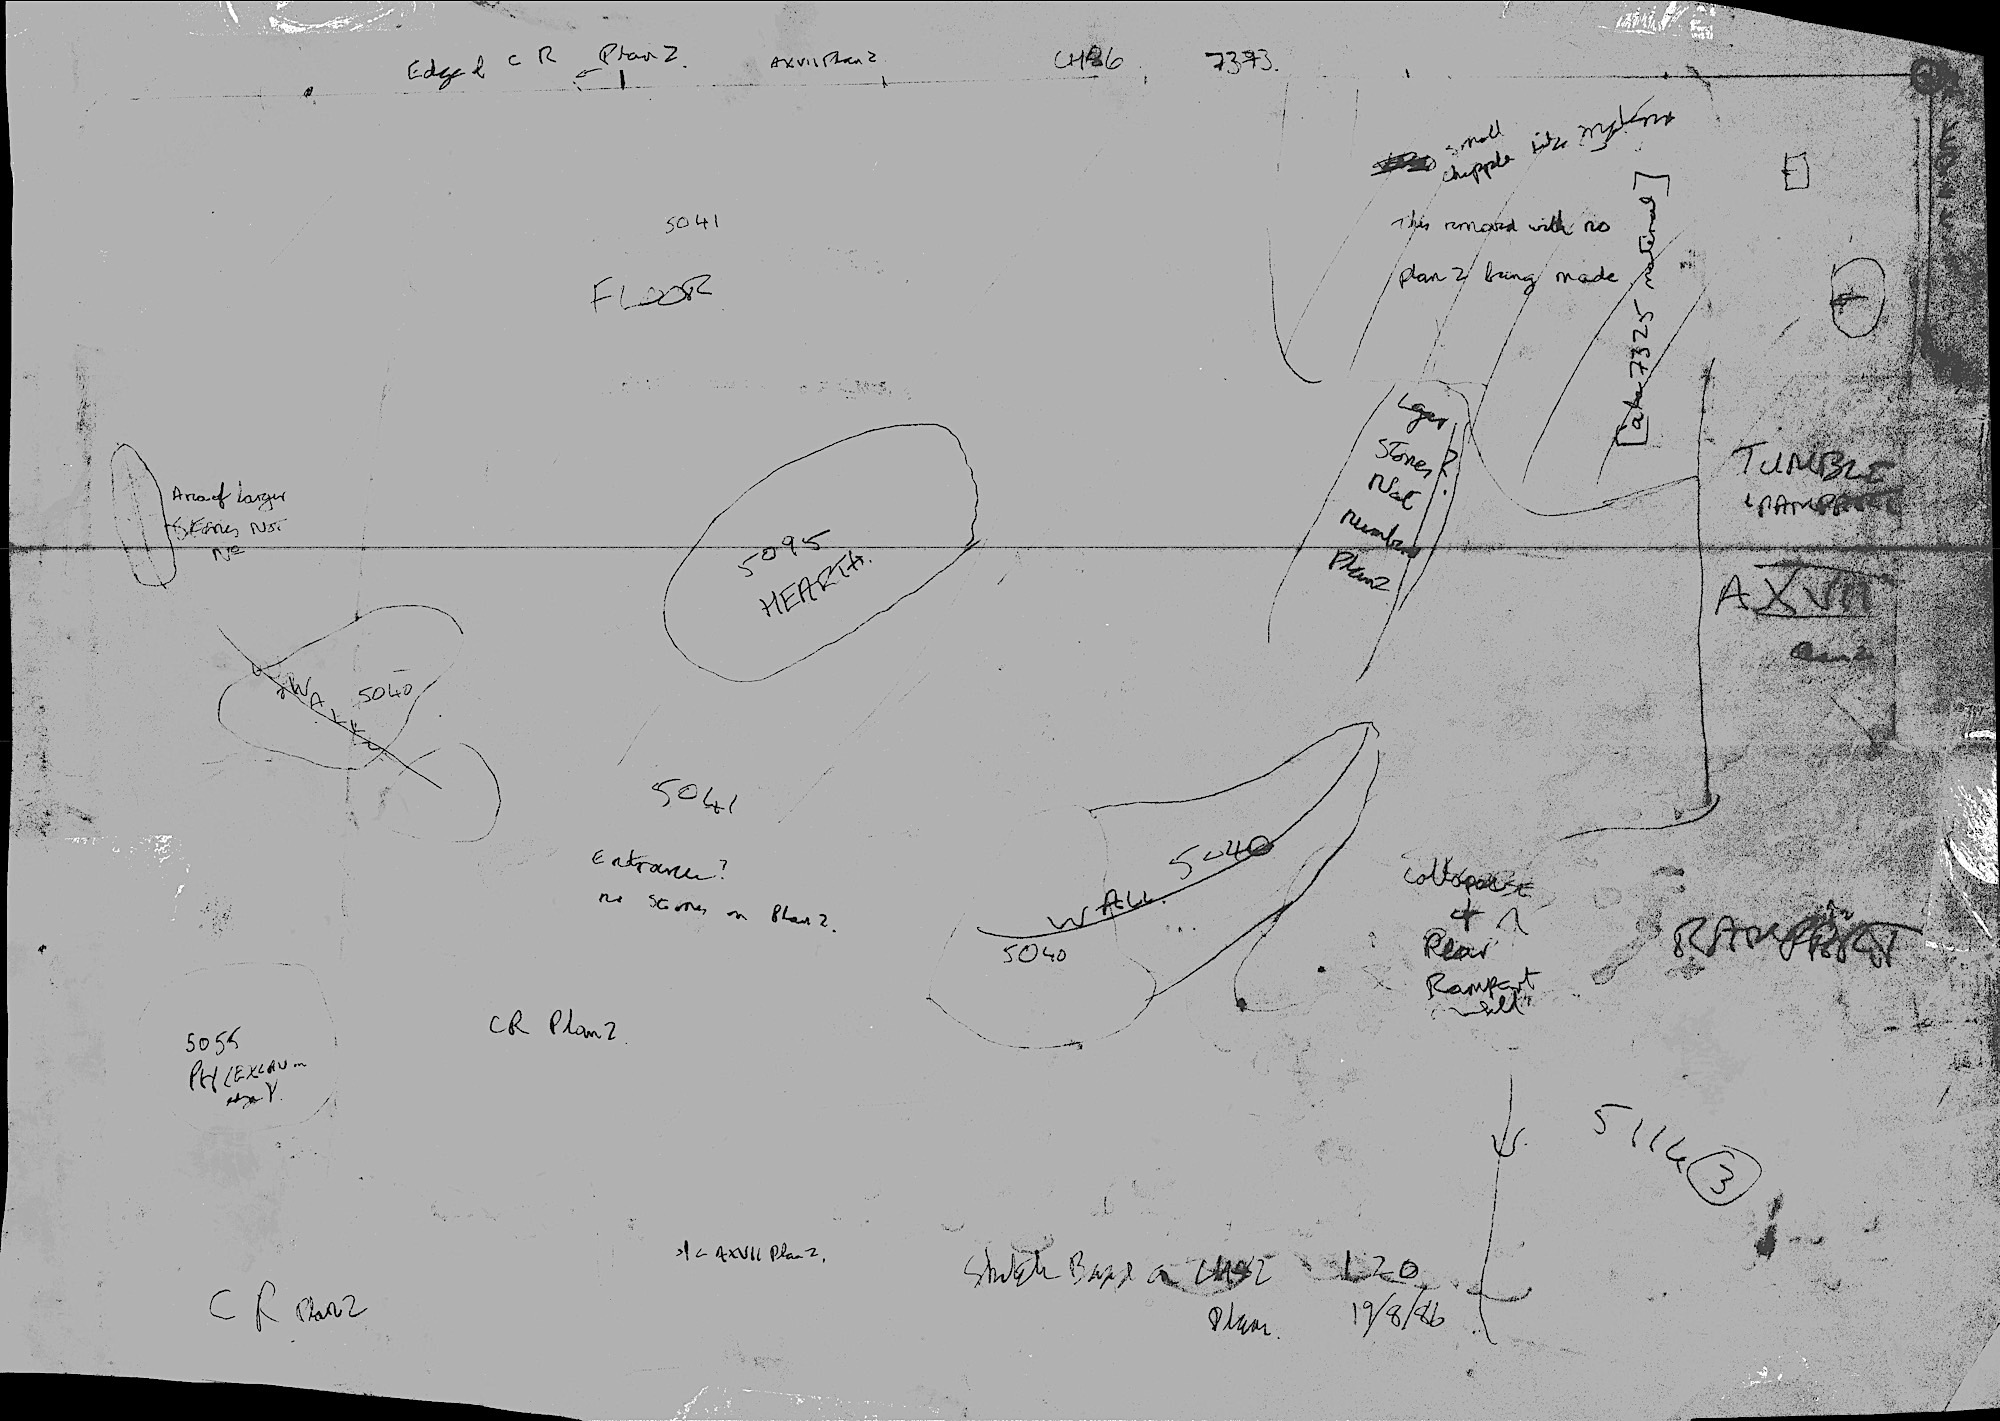 Edge of CR Plan 2.
AXVII Plan 2
CH86
7373.
small
chipple like material
This removed with no
plan 2 being made
[aka 7325 material]
5041
FLOOR
Lger
Stones?
Not
number
Plan 2
TUMBLE
RAMPART
AXVII
Area of Larger
Stones Not
5095
HEARTH.
WALL
5040
5041
Entrance?
no stones on Plan 2.
WALL 5040
5040
Collapse
+
Rear
Rampart
RAMPART
5055
CR Plan 2.
5114 (3)
AXVII Plan 2.
CR Plan 2
Sketch Based on CH82
Plan.
L20
19/8/86